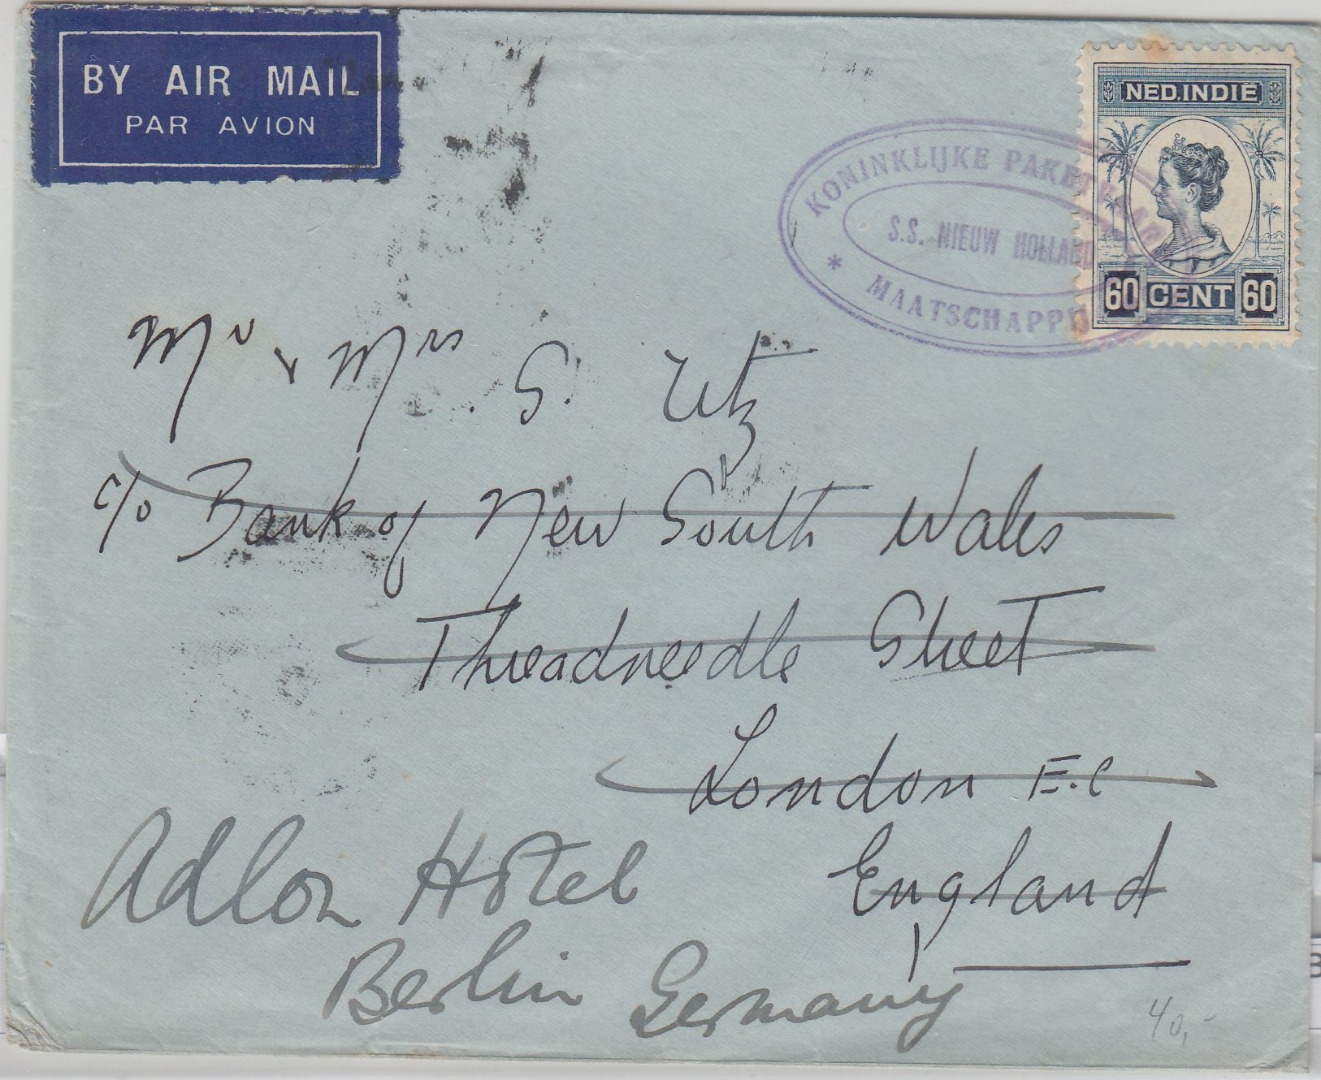 BY AIR MAIL
PAR AVION
NED.INDIË
60 CENT 60
KONINKLIJKE
S.S. NIEUW HOLLAND
* MAATSCHAPPIJ
Mr & Mrs. S. Utz
c/o Bank of New South Wales
Threadneedle Street
London E.C
England
Adlon Hotel
Berlin Germany
40,-